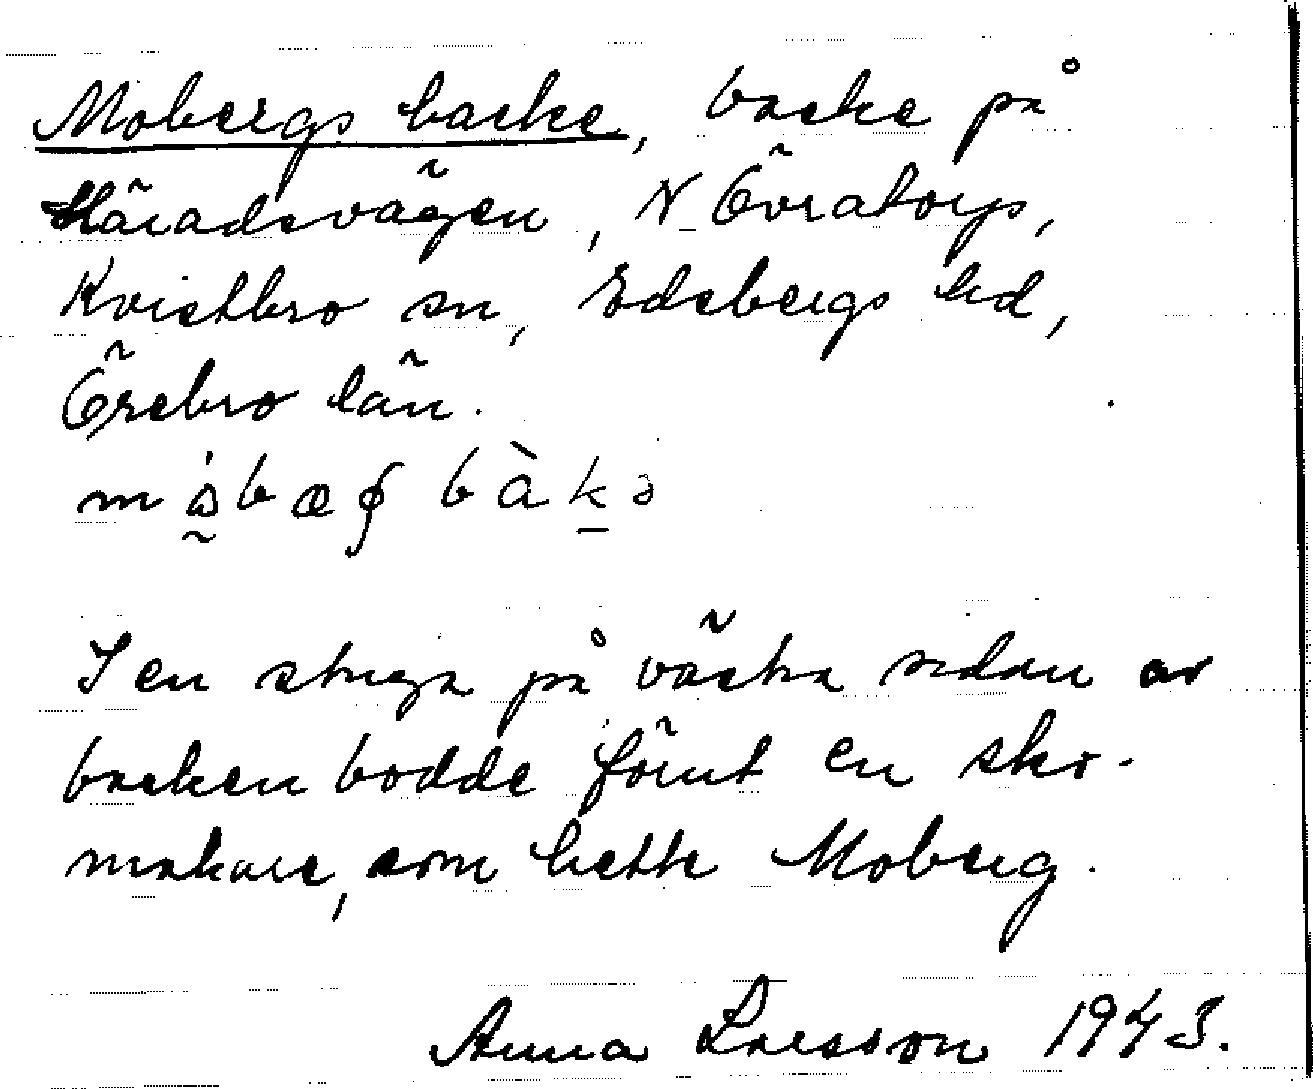 Mobergs backe, backe på
Häradsvägen, N Övratorps,
Kvistbro sn, Edsbergs hd,
Örebro län.
bàkə
I en stuga på västra sidan av
backen bodde förut en sko-
makare, som hette Moberg.
Anna Larsson 1943.